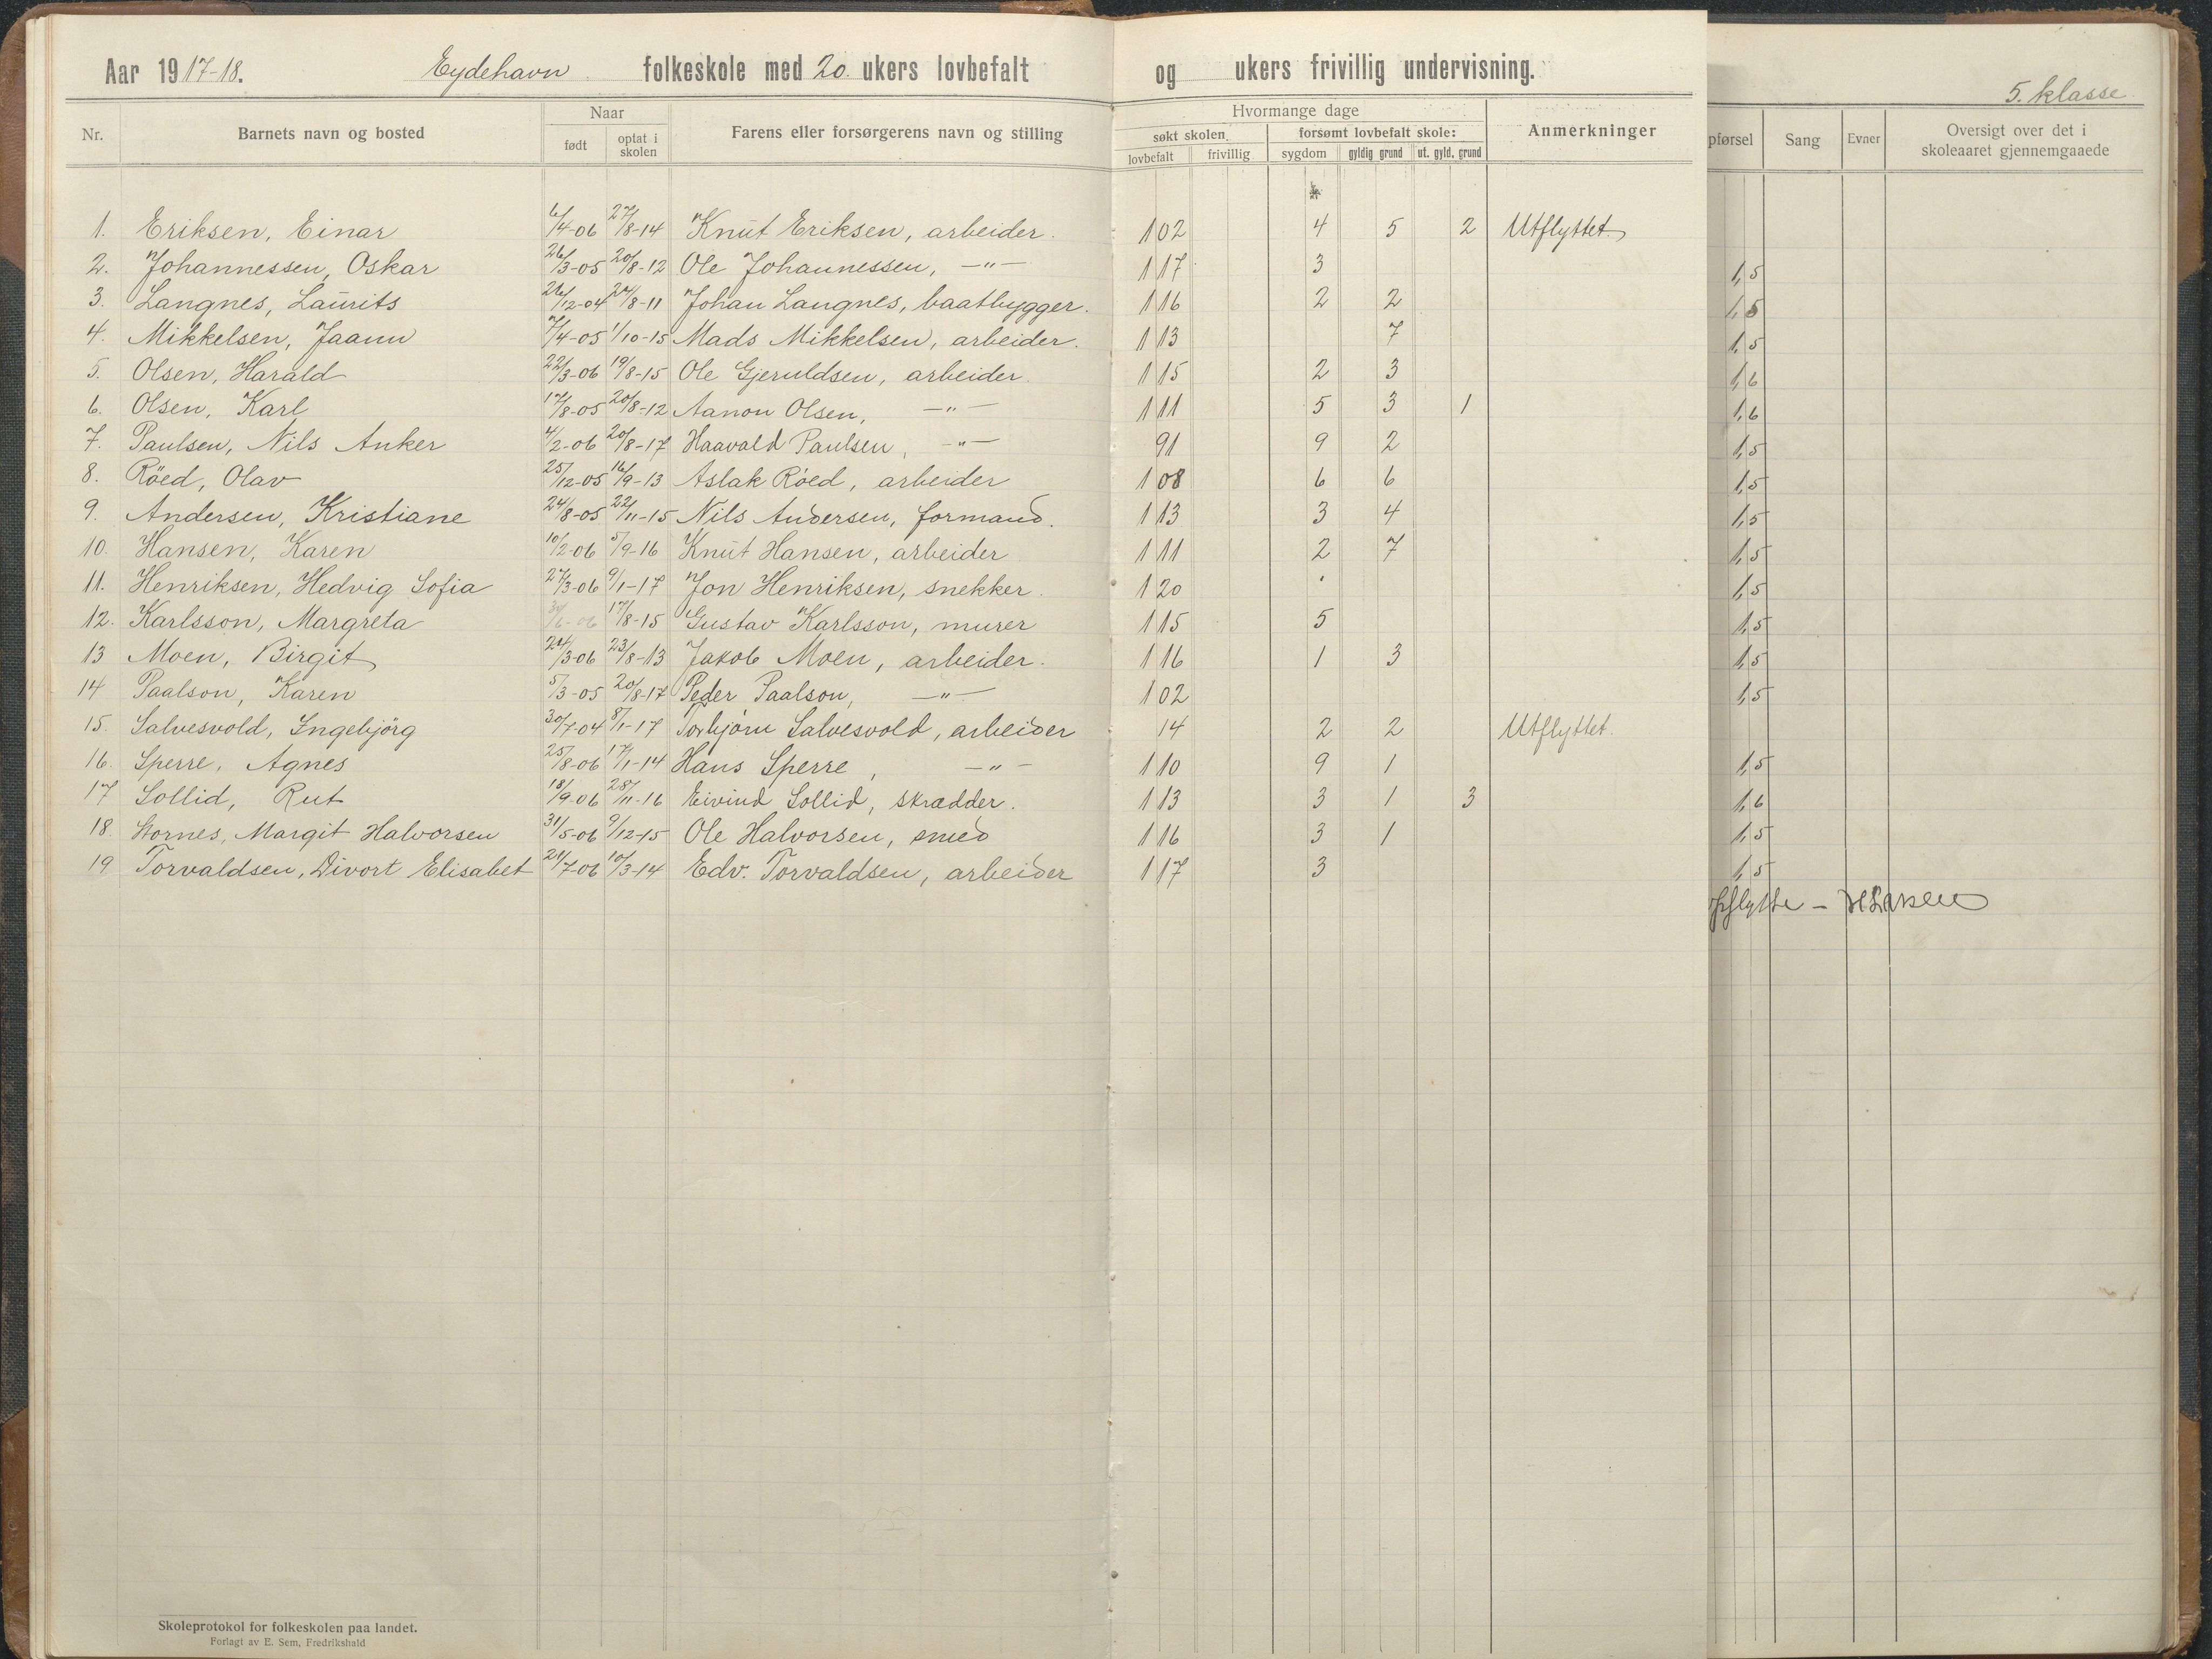 Aar 1917-18. Eydehavn folkeskole med 20. ukers lovbefalt og ukers frivillig undervisning.
5. klasse
Nr. Barnets navn og bosted Naar født optat i skolen Farens eller forsørgerens navn og stilling Hvormange dage søkt skolen lovbefalt frivillig forsømt lovbefalt skole: sygdom gyldig grund ut. gyld. grund Anmerkninger pførsel Sang Evner Oversigt over det i skoleaaret gjennemgaaede
1. Eriksen, Einar 6/4-06 27/8-14 Knut Eriksen, arbeider. 102 4 5 2 Utflyttet.
2. Johannessen, Oskar 26/3-05 20/8-12 Ole Johannessen, —"— 117 3 1,5
3. Langnes, Laurits 26/12-04 24/8-11 Johan Langnes, baatbygger. 116 2 2 1,5
4. Mikkelsen, Jaann 7/4-05 1/10-15 Mads Mikkelsen, arbeider. 113 7 1,5
5. Olsen, Harald 22/3-06 19/8-15 Ole Gjeruldsen, arbeider. 115 2 3 1,6
6. Olsen, Karl 17/8-05 20/8-12 Aanon Olsen, —"— 111 5 3 1 1,6
7. Paulsen, Nils Anker 4/2-06 20/8-17 Haavald Paulsen, —"— 91 9 2 1,5
8. Röed, Olav 25/12-05 16/9-13 Aslak Röed, arbeider 108 6 6 1,5
9. Andersen, Kristiane 24/8-05 22/11-15 Nils Andersen, formand. 113 3 4 1,5
10. Hansen, Karen 10/2-06 5/9-16 Knut Hansen, arbeider 111 2 7 1,5
11. Henriksen, Hedvig Sofia 27/3-06 9/1-17 Jon Henriksen, snekker. 120 1,5
12. Karlsson, Margreta 30/6-06 17/8-15 Gustav Karlsson, murer 115 5 1,5
13 Moen, Birgit 24/3-06 23/8-13 Jakob Moen, arbeider. 116 1 3 1,5
14 Paalson, Karen 5/3-05 20/8-17 Peder Paalson, —"— 102 1,5
15. Salvesvold, Ingebjörg 30/7-04 8/1-17 Torbjörn Salvesvold, arbeider 14 2 2 Utflyttet.
16. Sperre, Agnes 25/8-06 17/1-14 Hans Sperre, —"— 110 9 1 1,5
17 Sollid, Rut 18/9-06 28/11-16 Eivind Sollid, skrædder. 113 3 1 3 1,6
18. Stornes, Margit Halvorsen 31/5-06 9/12-15 Ole Halvorsen, smed 116 3 1 1,5
19 Torvaldsen, Divort Elisabet 21/7-06 10/3-14 Edv. Torvaldsen, arbeider 117 3 1,5
Skoleprotokol for folkeskolen paa landet.
Forlagt av E. Sem, Fredrikshald